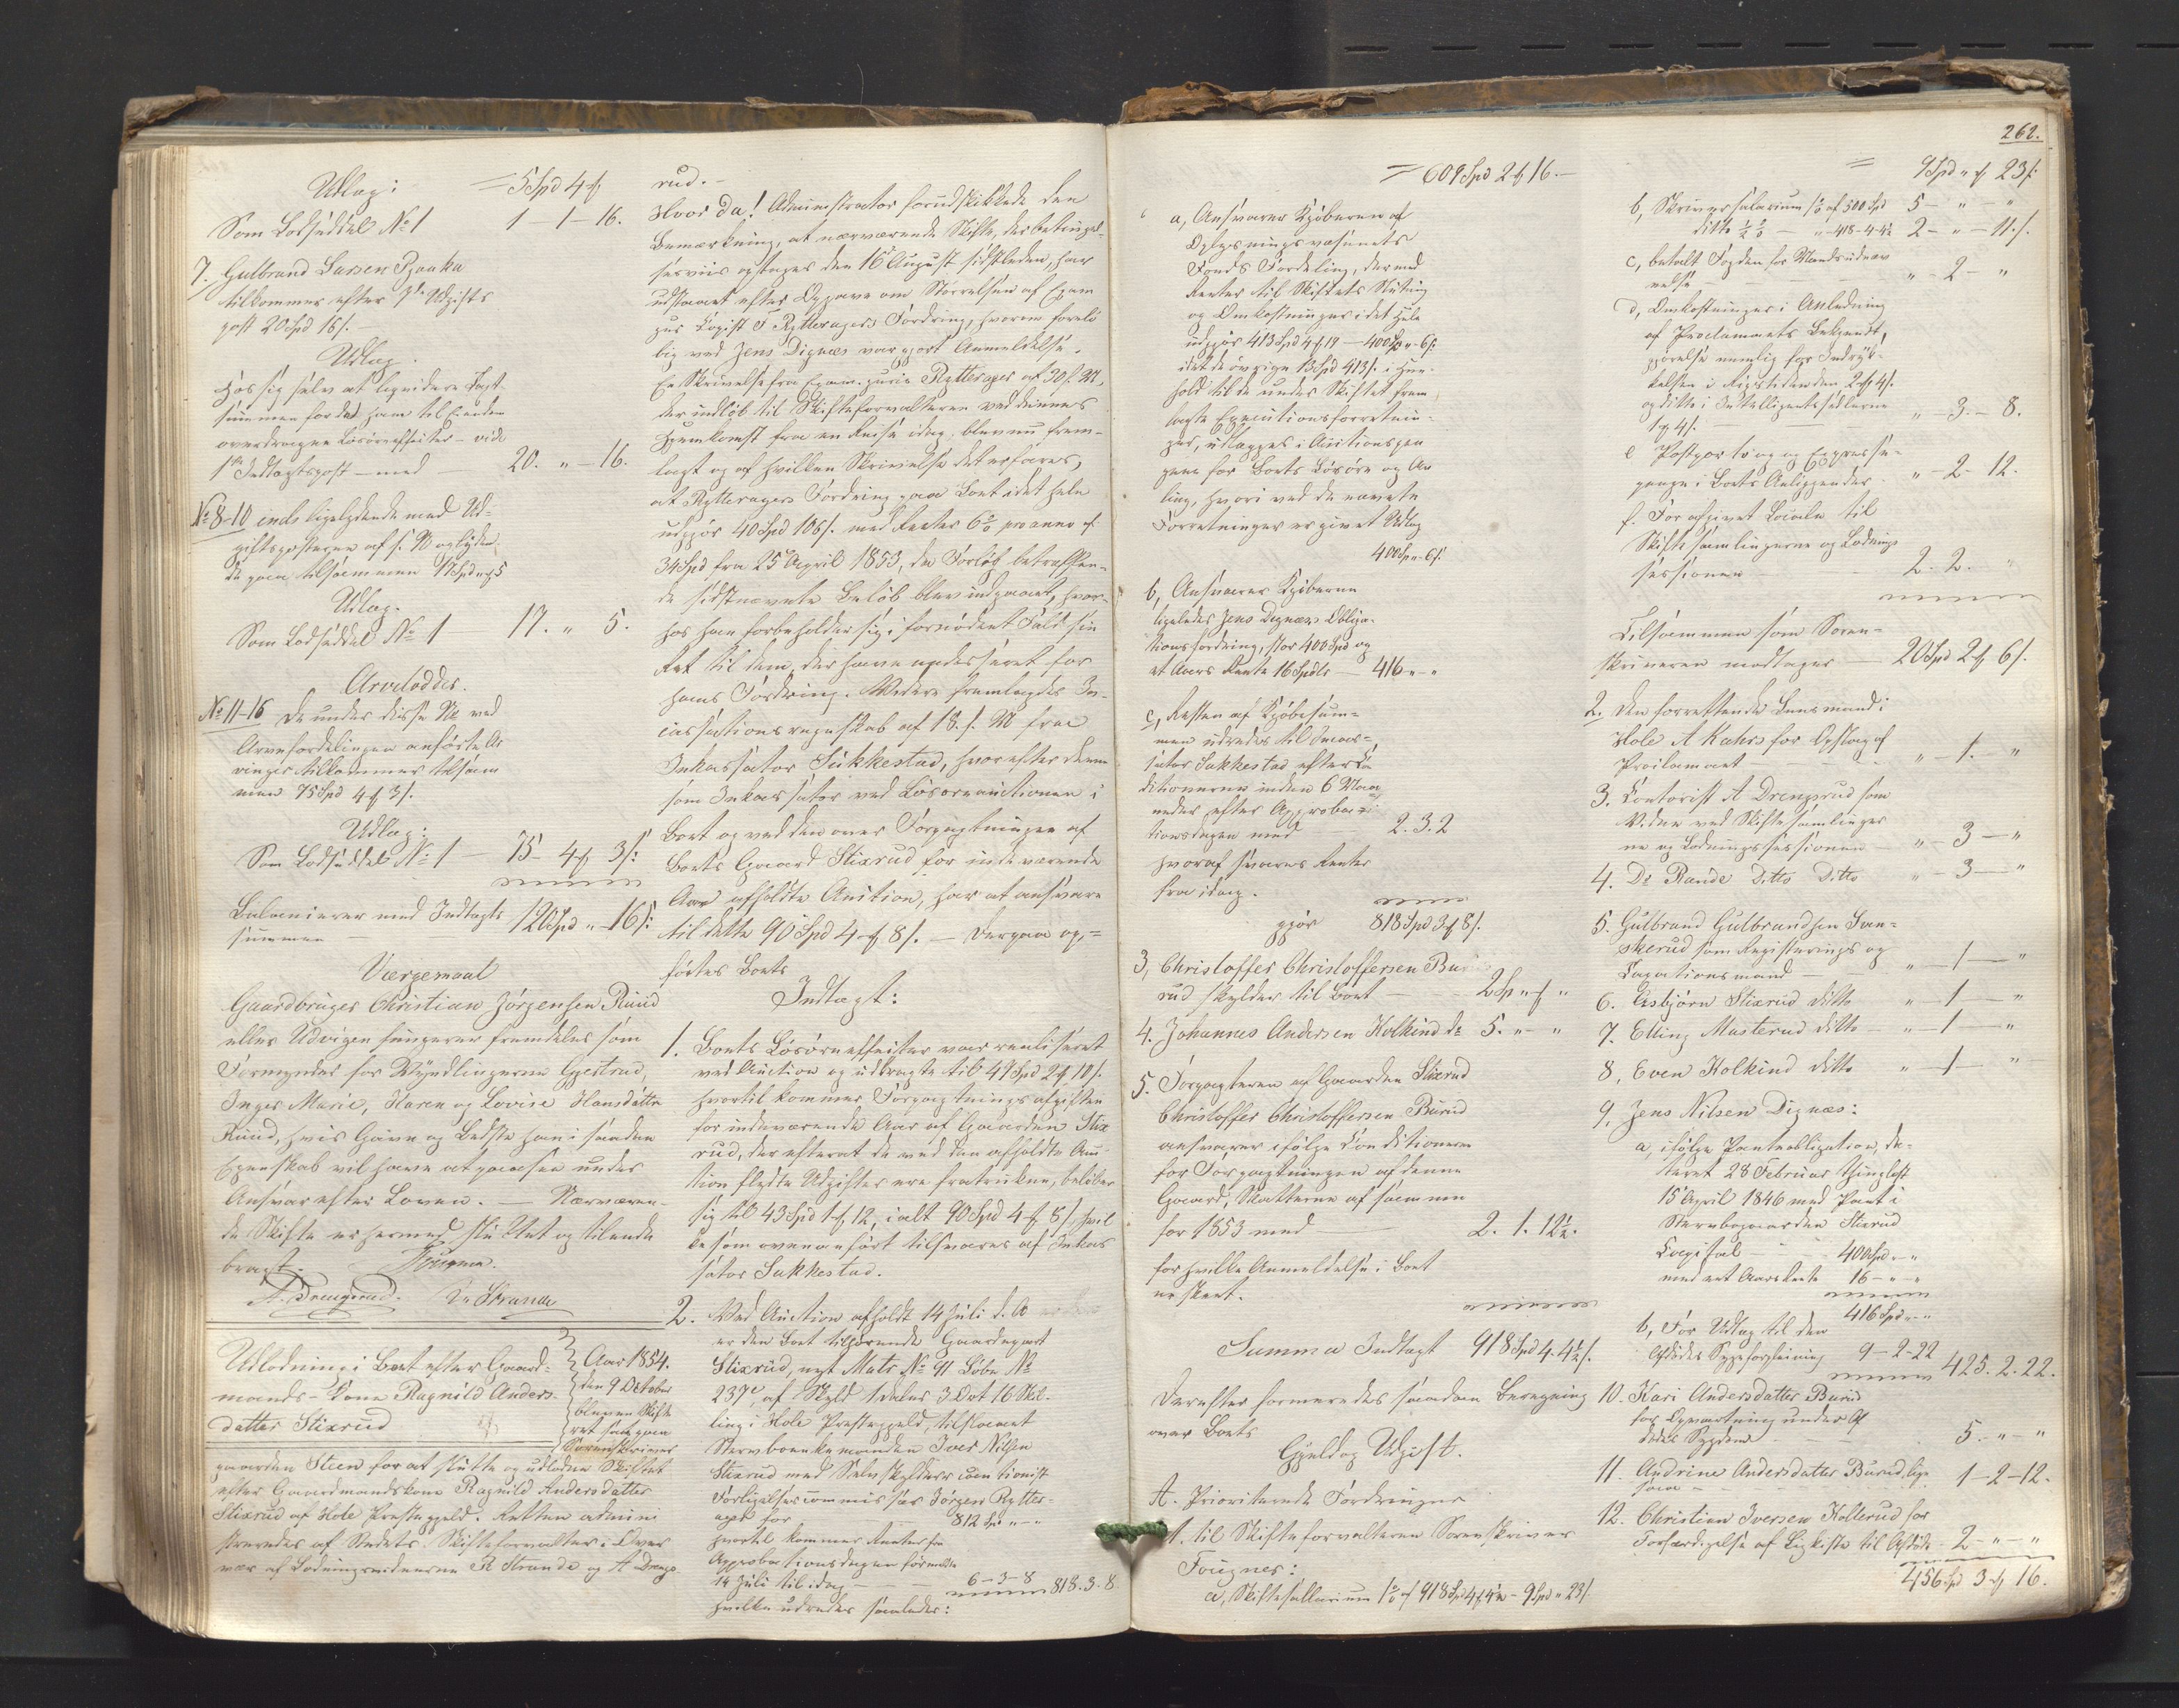 Udlæg: = 5 Spd 4 #
Som Lodseddel No 1 1 - 1 - 16.
7. Gulbrand Larsen Pjaaka
tilkommer efter 7de Udgifts
post 20 Spd 16 s.
Udlæg.
Hos sig selv at liqvidere Taxt-
summen for det ham til Eiendom
overdragne Løsøreeffecter - vide
1ste Indtægtspost - med - 20. " - 16.
No 8-10 incl. ligelydende med Ud-
giftsposterne af s. No og lyden-
de paa tilsammen 17 Spd " # 5
Udlæg.
Som Lodseddel No 1 - 17. " 5.
Arvelodder.
No 11-16 De under disse No ved
Arvefordelingen anførte Ar-
vinger tilkommer tilsam-
men 75 Spd 4 # 3 s.
Udlæg:
Som Lodseddel No 1 - 75 - 4 # 3 s.
Balancerer med Indtægts 120 Spd " - 16 s.
summen
Værgemaal
Gaardbruger Christian Jørgensen Ruud
eller Udvigen fungerer fremdeles som
Formynder for Myndlingerne Gjertrud,
Inger Marie, Karen og Lovise Hansdøttre
Ruud, hvis Gavn og Bedste han i saadan
Egenskab vil have at paasee under
Ansvar efter Loven. - Nærværen-
de Skifte er hermed sluttet og tilende
bragt.
A. Drengsrud. R. Strande
Udlodning i Boet efter Gaard-
mands-Kone Ragnild Anders-
datter Stixrud
Aar 1854.
den 9 October
blev en Skifte
ret sat paa
Sorenskriver
gaarden Steen for at slutte og udlodde Skiftet
efter Gaardmandskone Ragnild Andersdatter
Stixrud af Hole Præstegjeld. Retten admini
streredes af Stedets Skifteforvalter i Over
vær af Lodningsvidnerne R Strande og A Drengs-
rud. -
Hvor da! Administrator forudskikkede den
Bemærkning, at nærværende Skifte, der betingel-
sesviis optoges den 16de August sidstleden, har
udstaaet efter Opgave om Størrelsen af Exam
jur Copist F Rytteragers Fordring, hvorom forelø
big ved Jens Dignæs var gjort Anmeldelse.
En Skrivelse fra Exam. juris Rytterager af 30 f. M,
der indløb til Skifteforvalteren ved dennes
Hjemkomst fra en Reise idag blev nu frem-
lagt og af hvilken Skrivelse det erfares,
at Rytteragers Fordring paa Boet idet hele
udgjør 40 Spd 106 s. med Renter 6 % pro anno af
34 Spd fra 25de April 1853, da Forlig betræffen-
de sidstnævnte Beløb blev indgaaet, hvor-
hos han forbeholder sig i fornødent Fald sin
Ret til dem, der have underskrevet for
hans Fordring. Videre fremlagdes In-
cassationsregnskab af 18. f. M fra
Inkassator Sukkestad, hvorefter denne
som Inkassator ved Løsøreauctionen i
Boet og ved den over Forpagtningen af
Boets Gaard Stixrud for indeværende
Aar afholdte Auction, har at ansvare
til dette 90 Spd 4 # 8 s. - Derpaa op-
førtes Boets
Indtægt:
1. Boets Løsøreeffecter var realiseret
ved Auction og udbragte til 47 Spd 2 # 10 s.
hvortil kommer Forpagtningsafgiften
for indeværende Aar af Gaarden Stix
rud, der efterat de ved den afholdte Auc-
tion flydte Udgifter ere fratrukne, beløber
sig til 43 Spd 1 # 12, ialt 90 Spd 4 # 8 s, hvil
ke som ovenanført tilsvares af Inkas
sator Sukkestad.
2. Ved Auction afholdt 14 Juli d. A
er den Boet tilhørende Gaardepart
Stixrud, nyt Matr. No 91 Løbe No
237c, af Skyld 1 Daler 3 Ort 16 Skil-
ling i Hole Præstegjeld, tilslaaet
Stervboenkemanden Iver Nilsen
Stixrud med Selvskyldnercautionist
Forligelsescommissær Jørgen Rytter-
ager for - 812 Spd " - "
hvortil kommer Renter fra
Approbationsdagen førmeldte
14 Juli til idag - 6 - 3 - 8
818. 3. 8
hvilke udredes saaledes:
= 609 Spd 2 # 16. -
a, Ansvarer Kjøberen af
Oplysningsvæsenets
Fonds Fordeling, der med
Renter til Skiftets Slutning
og Omkostninger i det Hele
udgjør 413 Spd 4 # 19 - 400 Spd " - 6 s.
idet de øvrige 13 Spd 4 # 13 s. i Hen-
hold til de under Skiftet frem
lagte Executionsforretnin-
ger, udlægges i Auctionspen
gene for Boets Løsøre og Av
ling, hvori ved de nævnte
Forretninger er givet Udlæg
400 Spd " - 6 s.
b, Ansvarer Kjøberen
ligeledes Jens Dignæs Obliga-
tionsfordring, stor 400 Spd og
et Aars Rente 16 Spdlr - 416 " - "
c, Resten af Kjøbesum-
men udredes til Incas-
sator Sukkestad efter Co
ditionerne inden 6 Maa
neder efter Approba-
tionsdagen med - 2. 3. 2
hvoraf svares Renter
fra idag.
gjør 818 Spd 3 # 8 s.
3, Christoffer Christoffersen Bu-
rud skylder til Boet - 2 Sp " # "
4. Johannes Andersen Kolkind do 5. " - "
5. Forpagteren af Gaarden Stixrud
Christoffer Christoffersen Burud
ansvarer ifølge Conditionerne
for Forpagtningen af denne
Gaard, Skatterne af samme
for 1853 med - 2. 1. 12½.
for hvilke Anmeldelse i Boet
er skeet.
Summa Indtægt 918 Spd 4. 4½ s.
Derefter formeredes saadan Beregning
over Boets
Gjæld og Udgift.
A. Prioriterede Fordringer
1. til Skifteforvalteren Sorenskriver
Fougner:
a, Skiftesallarium 1 % af 918 Spd 4 # 4½ - 9 Spd " 23 s.
262.
= 9 Spd " # 23 s.
b, Skriversalarium 1 % af 500 Spd 5 - " - "
ditto ½ % - " - 418 - 4 - 4½ 2 - " - 11 s.
c, betalt Fogden for Mandsudnæv
nelse - " - 2 - "
d, Omkostninger i Anledning
af Proclamaets Bekjendt-
gjørelse nemlig for Indryk-
kelsen i Rigstidenden 2 # 4 s.
og ditto i Intelligentssedlerne
1 # 4 s. - " - 3. - 8.
e Postporto og Expresse-
penge i Boets Anliggender. " - 2 - 12.
f. For afgivet Locale til
Skiftesamlingerne og Lodnings
sessionen - 2. 2. "
Tilsammen som Soren-
skriveren modtager - 20 Spd 2 # 6 s.
2. Den forrettende Lensmand i
Hole A Kahrs for Opslag af
Proclamaet - " - 1. "
3. Contorist A Drengsrud som
Vidne ved Skiftesamlinger
ne og Lodningssessionen - " - 3 - "
4. Do Rande Ditto Ditto " - 3 - "
5. Gulbrand Gulbrandsen Sven-
skerud som Registrerings og
Taxationsmand - " - 1 - "
6. Eisbjørn Stixrud ditto " - 1 - "
7. Elling Masterud ditto " - 1 - "
8, Even Kolkind ditto " - 1 - "
9, Jens Nilsen Dignæs:
a, ifølge Panteobligation, da-
teret 28 Februar thinglæst
15 April 1846 med Pant i
Stervbogaarden Stixrud
Capital - 400 Spd - "
med et Aars Rente 16 - " - "
416 Spd - " - "
b, For Udlæg til den
Afdødes Sygeforpleining 9 - 2 - 22
425. 2. 22.
10. Kari Andersdatter Burud
for Opvartning under Af
dødes Sygdom 5. - " - "
11. Andrine Andersdatter Burud lige
saa - 1 - 2 - 12.
12. Christian Iversen Kolkerud for
Forfærdigelse af Ligkiste til Afdøde - 2 - " - "
456 Spd 3 # 16.